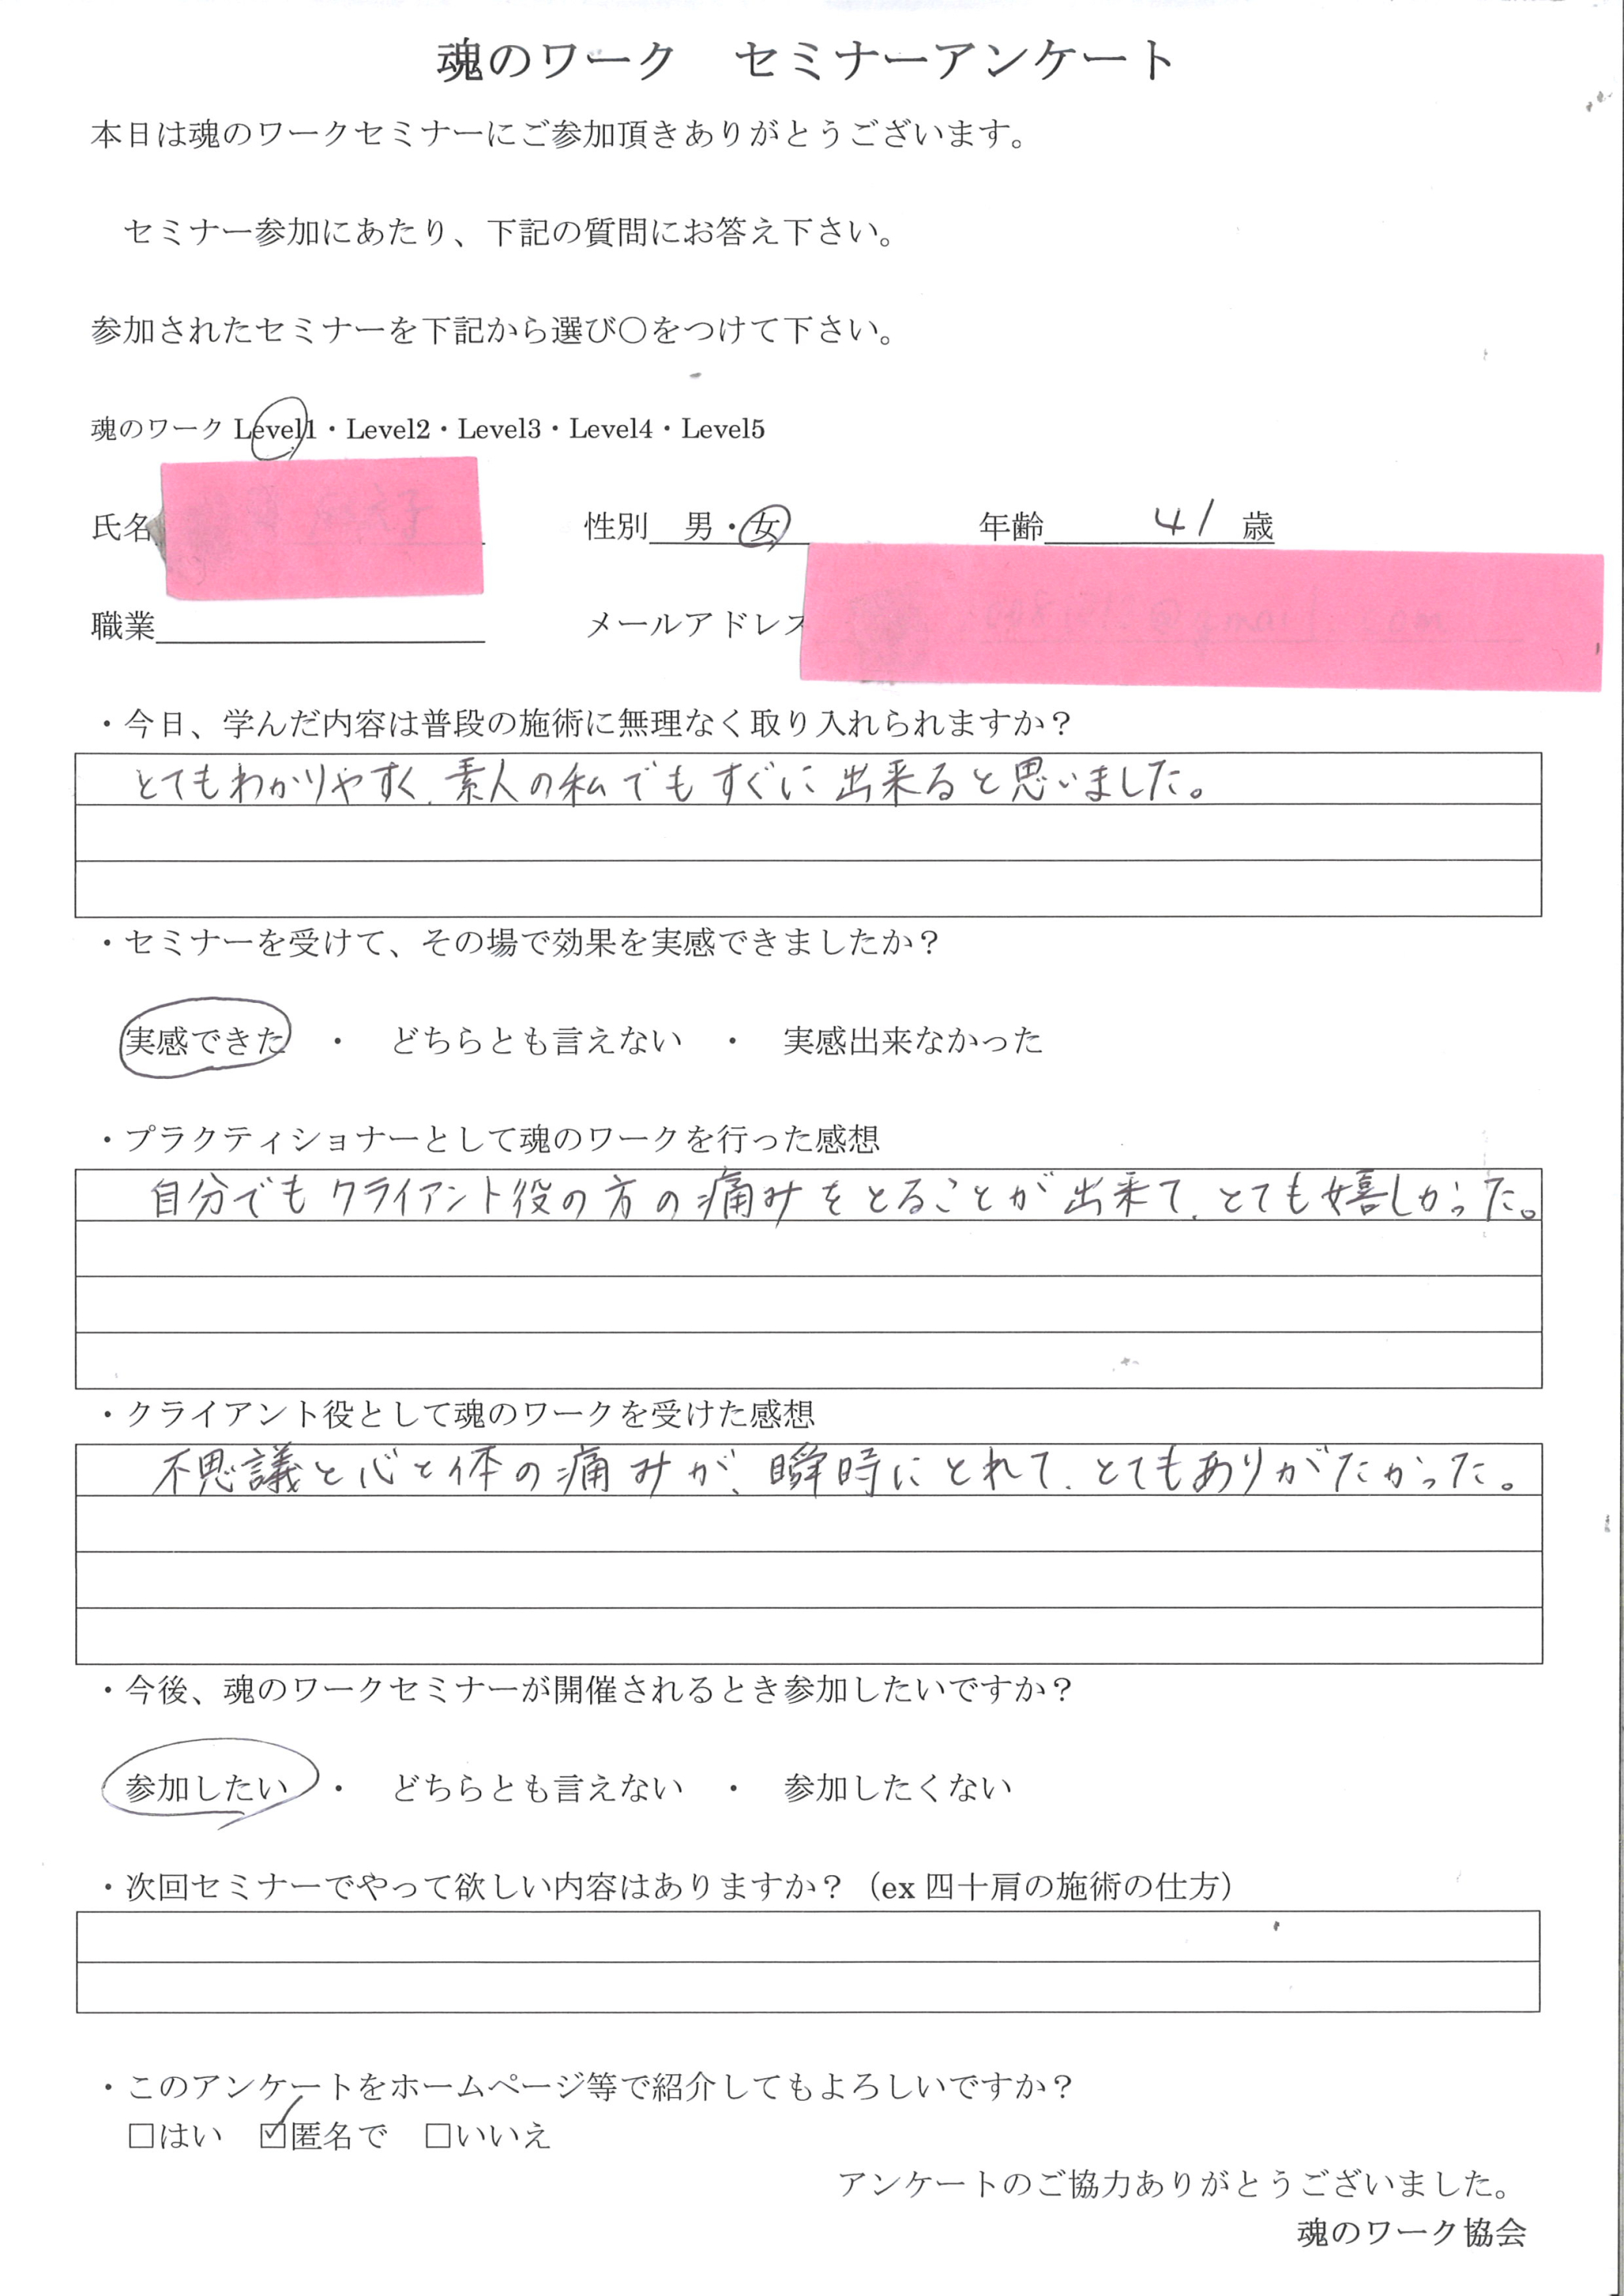 魂のワーク　セミナーアンケート
本日は魂のワークセミナーにご参加頂きありがとうございます。
セミナー参加にあたり、下記の質問にお答え下さい。
参加されたセミナーを下記から選び〇をつけて下さい。
魂のワーク Level1・Level2・Level3・Level4・Level5
氏名　性別　男・女　年齢　41　歳
職業　メールアドレス
・今日、学んだ内容は普段の施術に無理なく取り入れられますか？
とてもわかりやすく、素人の私でもすぐに出来ると思いました。
・セミナーを受けて、その場で効果を実感できましたか？
実感できた　・　どちらとも言えない　・　実感出来なかった
・プラクティショナーとして魂のワークを行った感想
自分でもクライアント役の方の痛みをとることが出来て、とても嬉しかった。
・クライアント役として魂のワークを受けた感想
不思議と心と体の痛みが、瞬時にとれて、とてもありがたかった。
・今後、魂のワークセミナーが開催されるとき参加したいですか？
参加したい　・　どちらとも言えない　・　参加したくない
・次回セミナーでやって欲しい内容はありますか？（ex 四十肩の施術の仕方）
・このアンケートをホームページ等で紹介してもよろしいですか？
□はい　☑匿名で　□いいえ
アンケートのご協力ありがとうございました。
魂のワーク協会